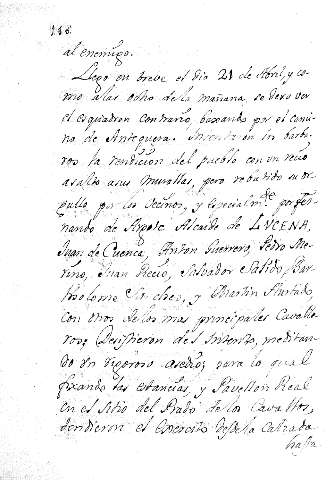 118.
al enemigo.
Llego en breve el dia 21 de Abril, y co-
mo a las ocho de la mañana, se dexo ver
el esquadron contrario, baxando por el cami-
no de Antequera. Intentaron los barba-
ros la rendicion del pueblo con un recio
asalto a sus murallas, pero rebatido su or-
gullo por los Vecinos, y especialm.te por Fer-
nando de Argote Alcaide de LUCENA,
Juan de Cuenca, Anton Guerrero, Pedro Me-
rino, Juan Recio, Salvador Salido, Bar-
tholome Sanchez, y Martin Hurtado,
con otros de los mas principales Cavalle-
ros; Desistieron del Intento, meditan-
do un rigoroso asedio; para lo qual
fixando las estancias, y Pavellon Real
en el Sitio del Prado de los Cavallos,
tendieron el Exercito desde la Calzada
hasta